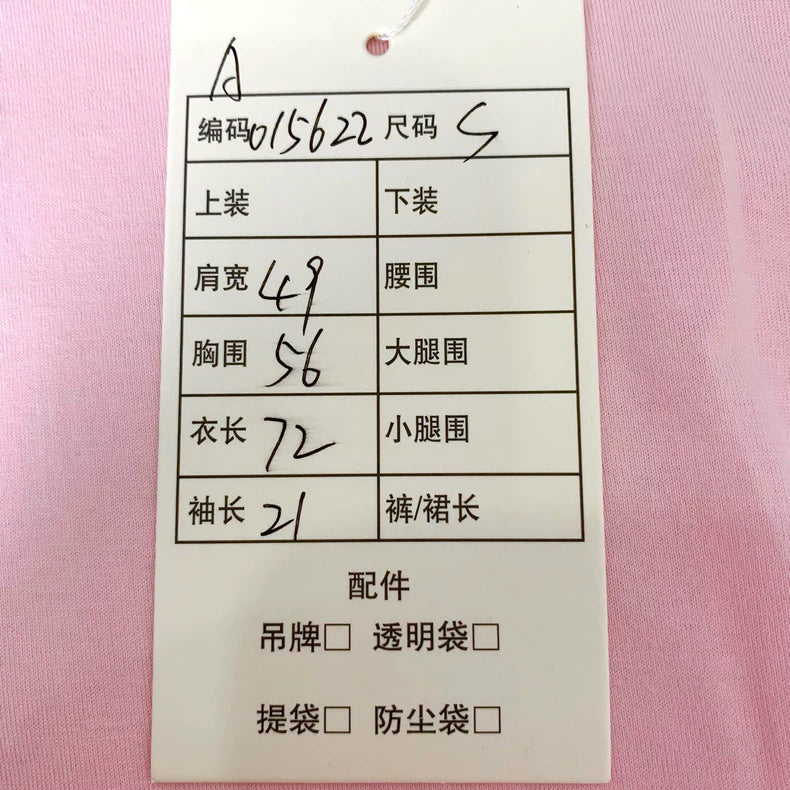 A
编码015622 尺码 S
上装 下装
肩宽 49 腰围
胸围 56 大腿围
衣长 72 小腿围
袖长 21 裤/裙长
配件
吊牌□ 透明袋□
提袋□ 防尘袋□